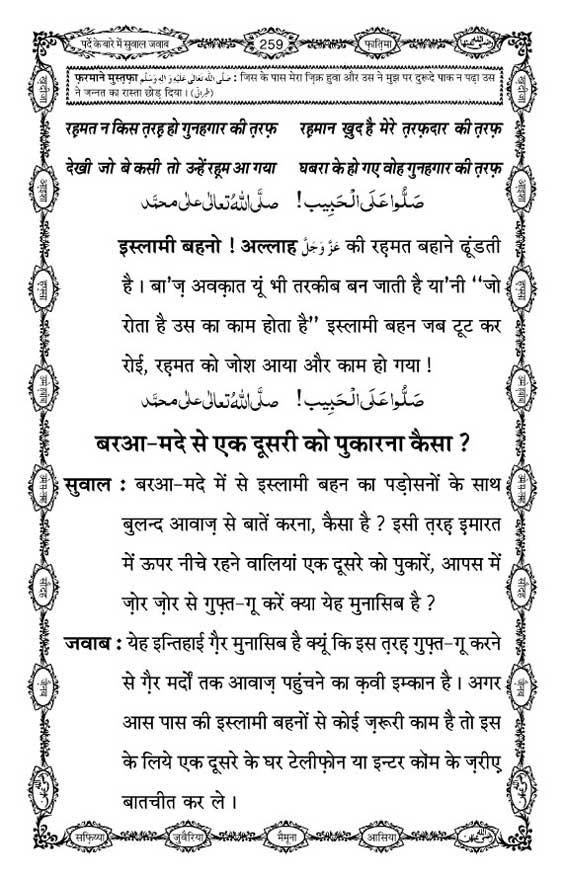 पर्दे के बारे में सुवाल जवाब
259
फ़ातिमा
फ़रमाने मुस्तफ़ा صَلَّى اللهُ تَعَالٰى عَلَيْهِ وَاٰلِهٖ وَسَلَّم : जिस के पास मेरा ज़िक्र हुवा और उस ने मुझ पर दुरूदे पाक न पढ़ा उस
ने जन्नत का रास्ता छोड़ दिया । (طبرانی)
रह़मत न किस त़रह़ हो गुनहगार की त़रफ़ रह़मान ख़ुद है मेरे त़रफ़दार की त़रफ़
देखी जो बे कसी तो उन्हें रह़म आ गया घबरा के हो गए वोह गुनहगार की त़रफ़
صَلُّوْا عَلَى الْحَبِيْب! صلَّى اللهُ تعالٰى على محمَّد
इस्लामी बहनो ! अल्लाह عَزَّوَجَلَّ की रह़मत बहाने ढूंडती
है । बा'ज़ अवक़ात यूं भी तरकीब बन जाती है या'नी "जो
रोता है उस का काम होता है" इस्लामी बहन जब टूट कर
रोई, रह़मत को जोश आया और काम हो गया !
صَلُّوْا عَلَى الْحَبِيْب! صلَّى اللهُ تعالٰى على محمَّد
बरआ-मदे से एक दूसरी को पुकारना कैसा ?
सुवाल : बरआ-मदे में से इस्लामी बहन का पड़ोसनों के साथ
बुलन्द आवाज़ से बातें करना, कैसा है ? इसी त़रह़ इमारत
में ऊपर नीचे रहने वालियां एक दूसरे को पुकारें, आपस में
ज़ोर ज़ोर से गुफ़्त-गू करें क्या येह मुनासिब है ?
जवाब : येह इन्तिहाई ग़ैर मुनासिब है क्यूं कि इस त़रह़ गुफ़्त-गू करने
से ग़ैर मर्दों तक आवाज़ पहुंचने का क़वी इम्कान है । अगर
आस पास की इस्लामी बहनों से कोई ज़रूरी काम है तो इस
के लिये एक दूसरे के घर टेलीफ़ोन या इन्टर कॉम के ज़रीए
बातचीत कर ले ।
सफ़िय्या
जुवैरिया
मैमूना
आसिया